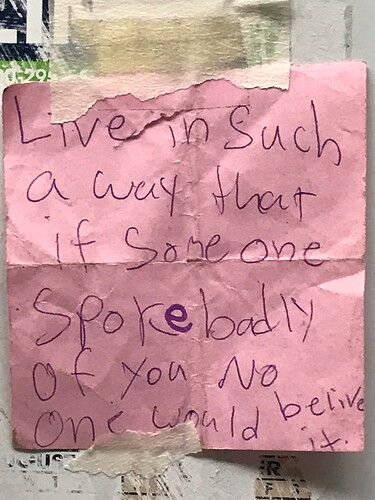 Live in Such
a way that
if Someone
Spoke badly
Of You No
One would belive
it.